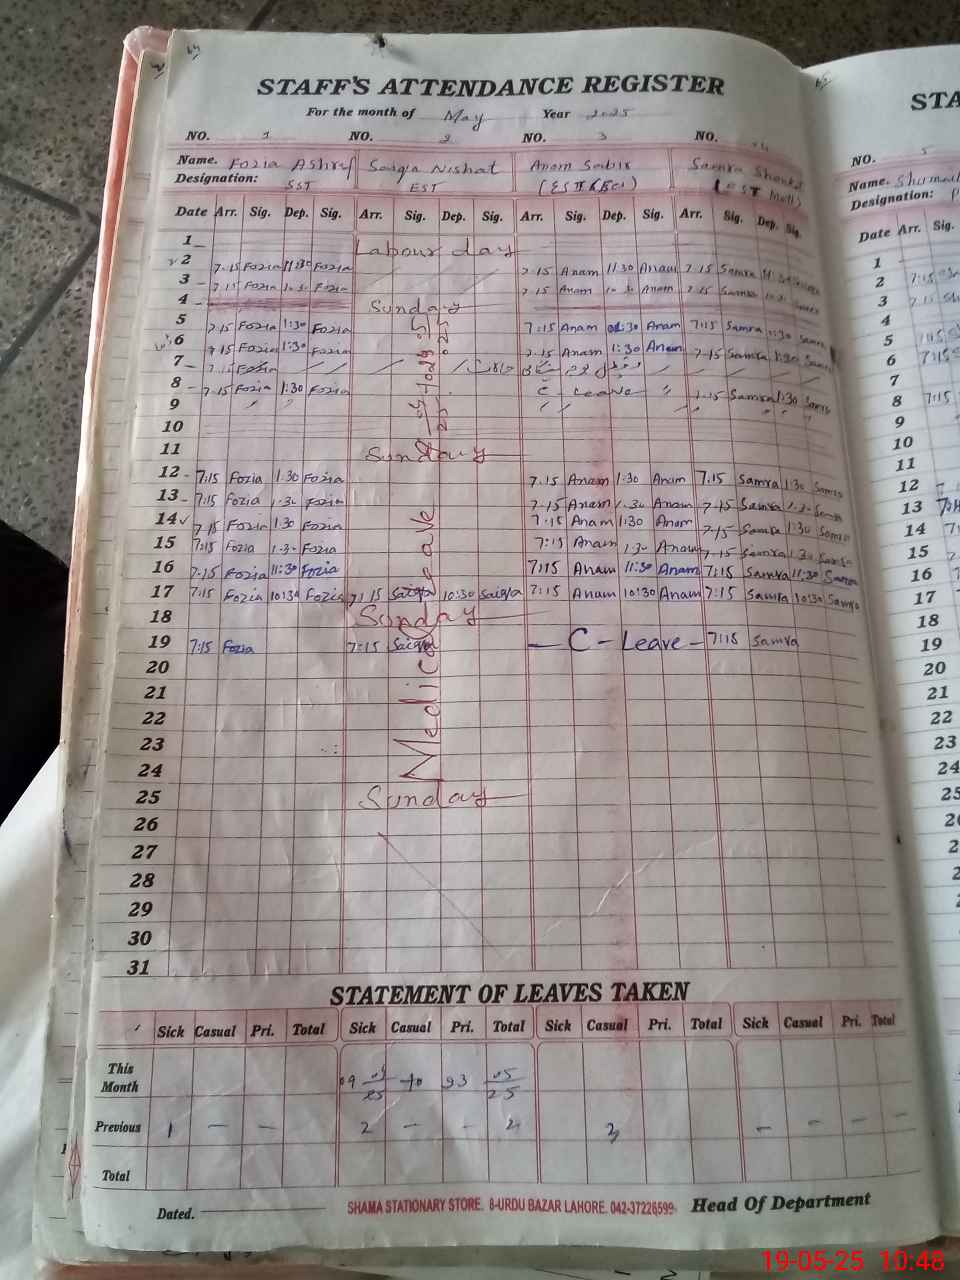 STAFF'S ATTENDANCE REGISTER
For the month of May Year 2025
NO. 1 NO. 2 NO. 3 NO.
Name. Fozia Ashraf Saiqa Nishat Anam Sabir Samra Shoukat
Designation: SST EST
Date Arr. Sig. Dep. Sig. Arr. Sig. Dep. Sig. Arr. Sig. Dep. Sig. Arr. Sig. Dep. Sig.
1 Labour day
2 7.15 Fozia 11:30 Fozia 7.15 Anam 11:30 Anam 7.15 Samra
3 7.15 Fozia Fozia 7.15 Anam Anam 7.15 Samra
4 Sunday
5 7.15 Fozia 1:30 Fozia 7:15 Anam Anam 7:15 Samra 1:30 Sam
6 7.15 Fozia 1:30 Fozia 7.15 Anam 1:30 Anam 7.15 Samra 1:30 Samra
7 7.15 Fozia
8 7.15 Fozia 1:30 Fozia C - Leave 7.15 Samra 1:30 Samra
9
10
11 Sunday
12 7:15 Fozia 1.30 Fozia 7.15 Anam 1:30 Anam 7:15 Samra 1:30 Samra
13 7:15 Fozia 1:30 Fozia 7.15 Anam 1.30 Anam 7.15 Samra Samra
14 7.15 Fozia 1:30 Fozia 7:15 Anam 1:30 Anam 7.15 Samra 1:30 Samra
15 7:15 Fozia 1.30 Fozia 7:15 Anam 1.30 Anam 7.15 Samra 1:30 Samra
16 7.15 Fozia 11:30 Fozia 7:15 Anam 11:30 Anam 7:15 Samra 11:30 Samra
17 7:15 Fozia 10:30 Fozia 7:15 Saiqa 10:30 Saiqa 7:15 Anam 10:30 Anam 7:15 Samra 10:30 Samra
18 Sunday
19 7:15 Fozia 7:15 Saiqa - C - Leave - 7:15 Samra
20
21
22
23
24
25 Sunday
26
27
28
29
30
31
Medical Leave
STATEMENT OF LEAVES TAKEN
Sick Casual Pri. Total Sick Casual Pri. Total Sick Casual Pri. Total Sick Casual Pri. Total
This Month
Previous 1 - - 2 - - 2 3 - - - -
Total
Dated.
SHAMA STATIONARY STORE. 8-URDU BAZAR LAHORE. 042-37226599-
Head Of Department
STA
NO. 5
Name.
Designation: P
Date Arr. Sig.
1
2 7:15
3
4
5
6 7:15
7
8 7:15
9
10
11
12
13
14
15
16
17
18
19
20
21
22
23
24
25
19-05-25 10:48